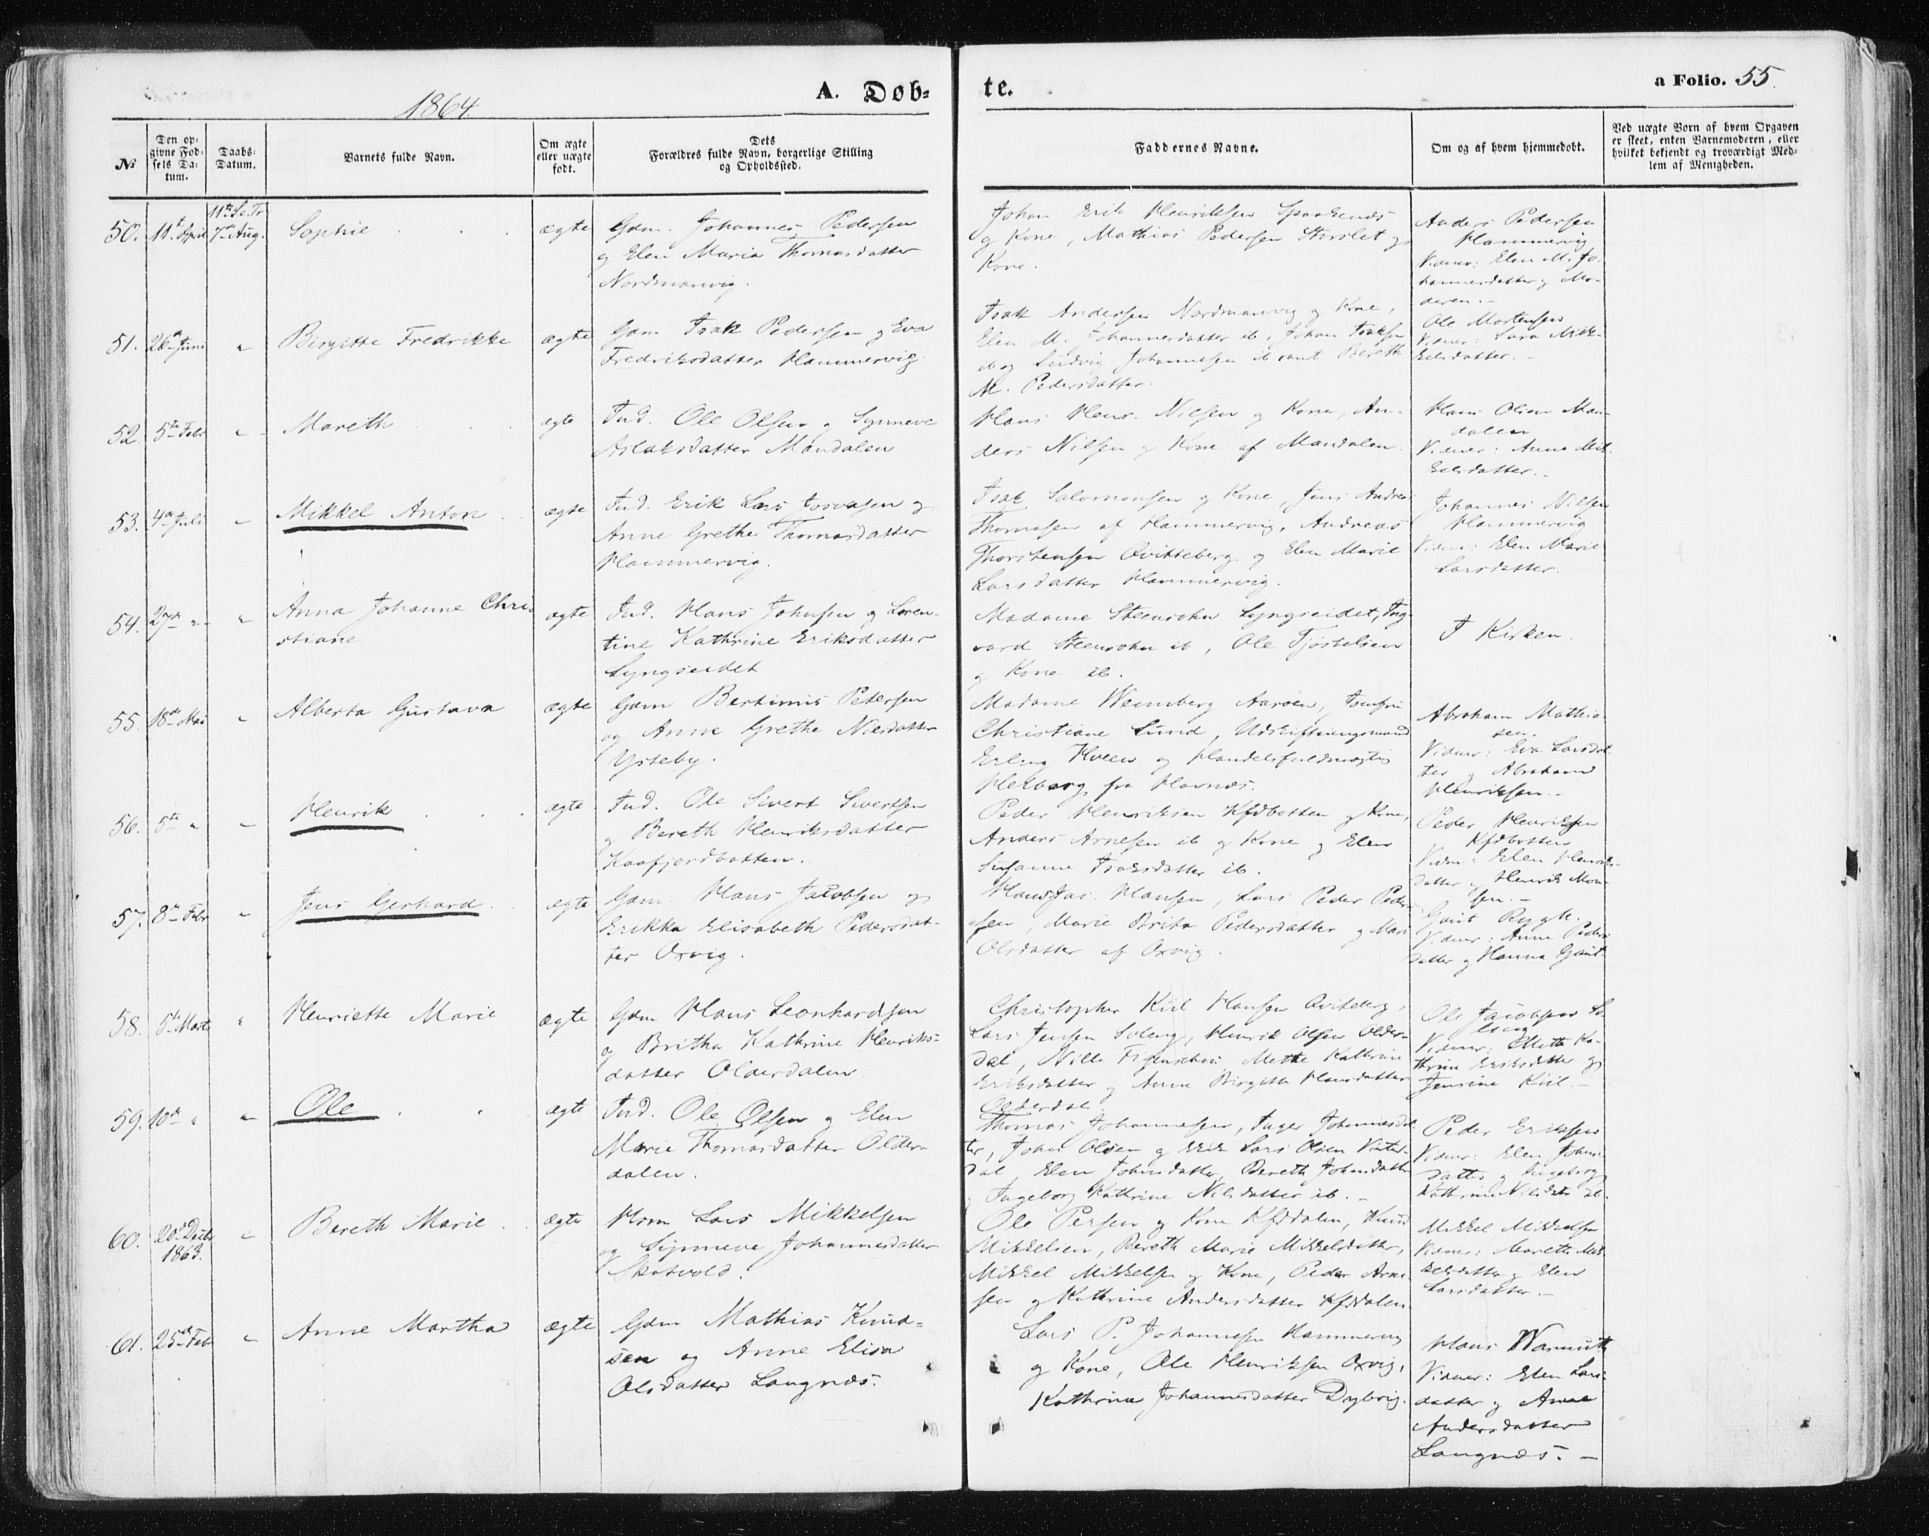 1864
A. Døb-
te.
a Folio. 55.
No
Den op-
givne Fød-
sels Da-
tum.
Daabs-
Datum.
Barnets fulde Navn.
Om ægte
eller uægte
født.
Dets
Forældres fulde Navn, borgerlige Stilling
og Opholdssted.
Faddernes Navne.
Om og af hvem hjemmedøbt.
Ved uægte Børn af hvem Opgaven
er skeet, enten Barnemoderen, eller
hvilket bekjendt og troværdigt Med-
lem af Menigheden.
50. 11te April 7de Aug. Sophie ægte
Gdm. Johannes Pedersen
og Elen Maria Thomasdatter
Nordmanvig.
Johan Erik Henriksen Spaakenæs
og Kone, Mathias Pedersen Storslet og
Kone.
Anders Pedersen
Hammervig
Vidner: Elen M. Jo-
hannesdatter og Mo-
deren.-
51. 26de Juni " Birgitte Fredrikke ægte
Gdm Isak Pedersen og Eva
Fredriksdatter Hammervig
Isak Andersen Nordmanvig og Kone,
Elen M. Johannesdatter ib, Johan Isaksen
ib og Ludvig Johannesen ib samt Bereth
M. Pedersdatter.
Ole Mortensen
Vidner: Sara Mik-
kelsdatter.-
52. 5te Febr " Mareth ægte
Ind. Ole Olsen og Synneve
Aslaksdatter Mandalen
Hans Henr. Nilsen og Kone, An-
ders Nilsen og Kone af Mandalen.
Hans Olsen Man-
dalen
Vidner: Anne Mik-
kelsdatter.-
53. 4de Juli " Mikkel Anton ægte
Ind. Erik Lars Josvasen og
Anne Grethe Thomasdatter
Hammervig.
Isak Salomonsen og Kone, Jens Andreas
Thomasen af Hammervig, Andreas
Thorstensen Qvitteberg og Elen Marie
Larsdatter Hammervig.
Johannes Nilsen
Hammervig
Vidner: Elen Marie
Larsdatter.
54. 27de " " Anna Johanne Chri-
stiane ægte
Ind. Hans Johnsen og Loren-
tine Kathrine Eriksdatter
Lyngseidet
Madame Steensohn Lyngseidet, Ing-
vard Steensohn ib, Ole Fjøstelsen
og Kone ib.
I Kirken.
55. 18de Mai " Alberta Gustava ægte
Gdm Bertinus Petersen
og Anne Grethe Nilsdatter
Ytteby.
Madame Wennberg Aarøen, Jomfru
Christiane Lund, Udskiftningsmand
Erling Hveen og Handelsfuldmægtig
Helberg fra Havnæs.
Abraham Mathia-
sen.
Vidner: Eva Larsdat-
ter og Abraham
Henriksen.-
56. 5te " " Henrik ægte
Ind. Ole Sivert Sivertsen
og Bereth Henriksdatter
Kaafjordbotten.
Peder Henriksen Kfdbotten og Kone,
Anders Arnesen ib og Kone og Elen
Susanne Isaksdatter ib.
Peder Henriksen
Kfdbotten
Vidn: Elen Henriks-
datter og Henrik Mon-
sen.-
57. 8de Febr " Jens Gerhard ægte
Gdm. Hans Jacobsen og
Erikka Elisabeth Pedersdat-
ter Oxvig.
Hans Jac. Hansen, Lars Peder Peder-
sen, Marie Brita Pedersdatter og Mari
Olsdatter af Oxvig.
Gjert Rygh.
Vidner: Anne Peders-
datter og Hanna Gjært
58. 5te Marts " Henriette Marie ægte
Gdm Hans Leonhardsen
og Britha Kathrine Henriks-
datter Olderdalen
Christopher Kiil Hansen Qviteberg,
Lars Jensen Soleng, Henrik Olsen Older-
dal, Nille Mette Kathrine
Eriksdatter og Anne Birgitta Hansdatter
Olderdal
Ole Jacobsen So-
leng
Vidner: Mette Ka-
thrine Eriksdatter og
Jensine Kiil.-
59. 10de " " Ole ægte
Ind. Ole Olsen og Elen
Marie Thomasdatter Older-
dalen.
Thomas Johannesen, Inger Johannesdat-
ter, Johan Olsen og Erik Lars Olsen
dal, Elen Johnsdatter, Bereth Johnsdatter
Ingeborg Kathrine Nilsdatter ib.-
Peder Eriksen
Vidner: Elen Johns-
datter og Ingeborg
Kathrine Nilsdat. ib.
60. 20de Decbr
1863. " Bereth Marie ægte
Hsm Lars Mikkelsen
og Synneve Johannesdatter
Skatvold.
Ole Persen og Kone Kfddalen, Knud
Mikkelsen, Bereth Marie Mikkelsdatter,
Mikkel Mikkelsen og Kone, Peder Arne-
sen og Kathrine Andersdatter Kfddalen
Mikkel Mikkelsen
Vidner: Mareth Mik-
kelsdatter og Elen
Larsdatter.-
61. 25de Feb " Anne Martha ægte
Gdm Mathias Knud-
sen og Anne Elisa
Olsdatter Langnæs.
Lars P. Johannesen Hammervig
og Kone, Ole Henriksen Oxvig,
Kathrine Johannesdatter Dybvig.
Hans Warmuth
Vidner: Elen Lars-
datter og Anne
Andersdatter
Langnæs.-